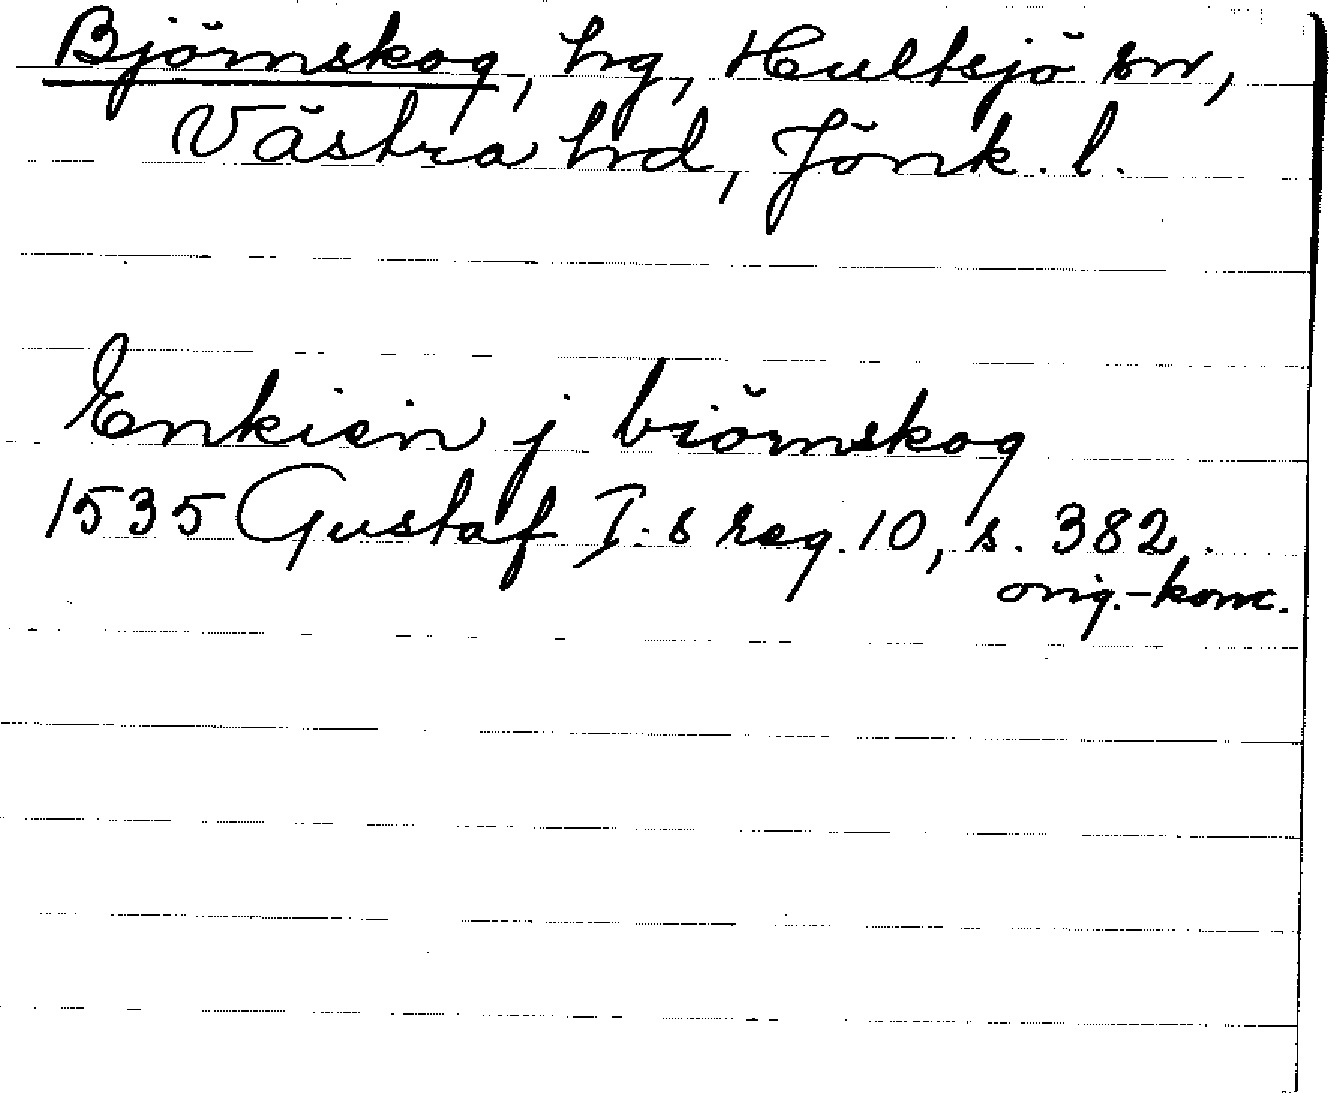 Björnskog, hg, Hultsjö sn,
Västra hrd, Jönk. l.
Enkien j biörnskog
1535 Gustaf I:s reg. 10, s. 382,
orig.-konc.